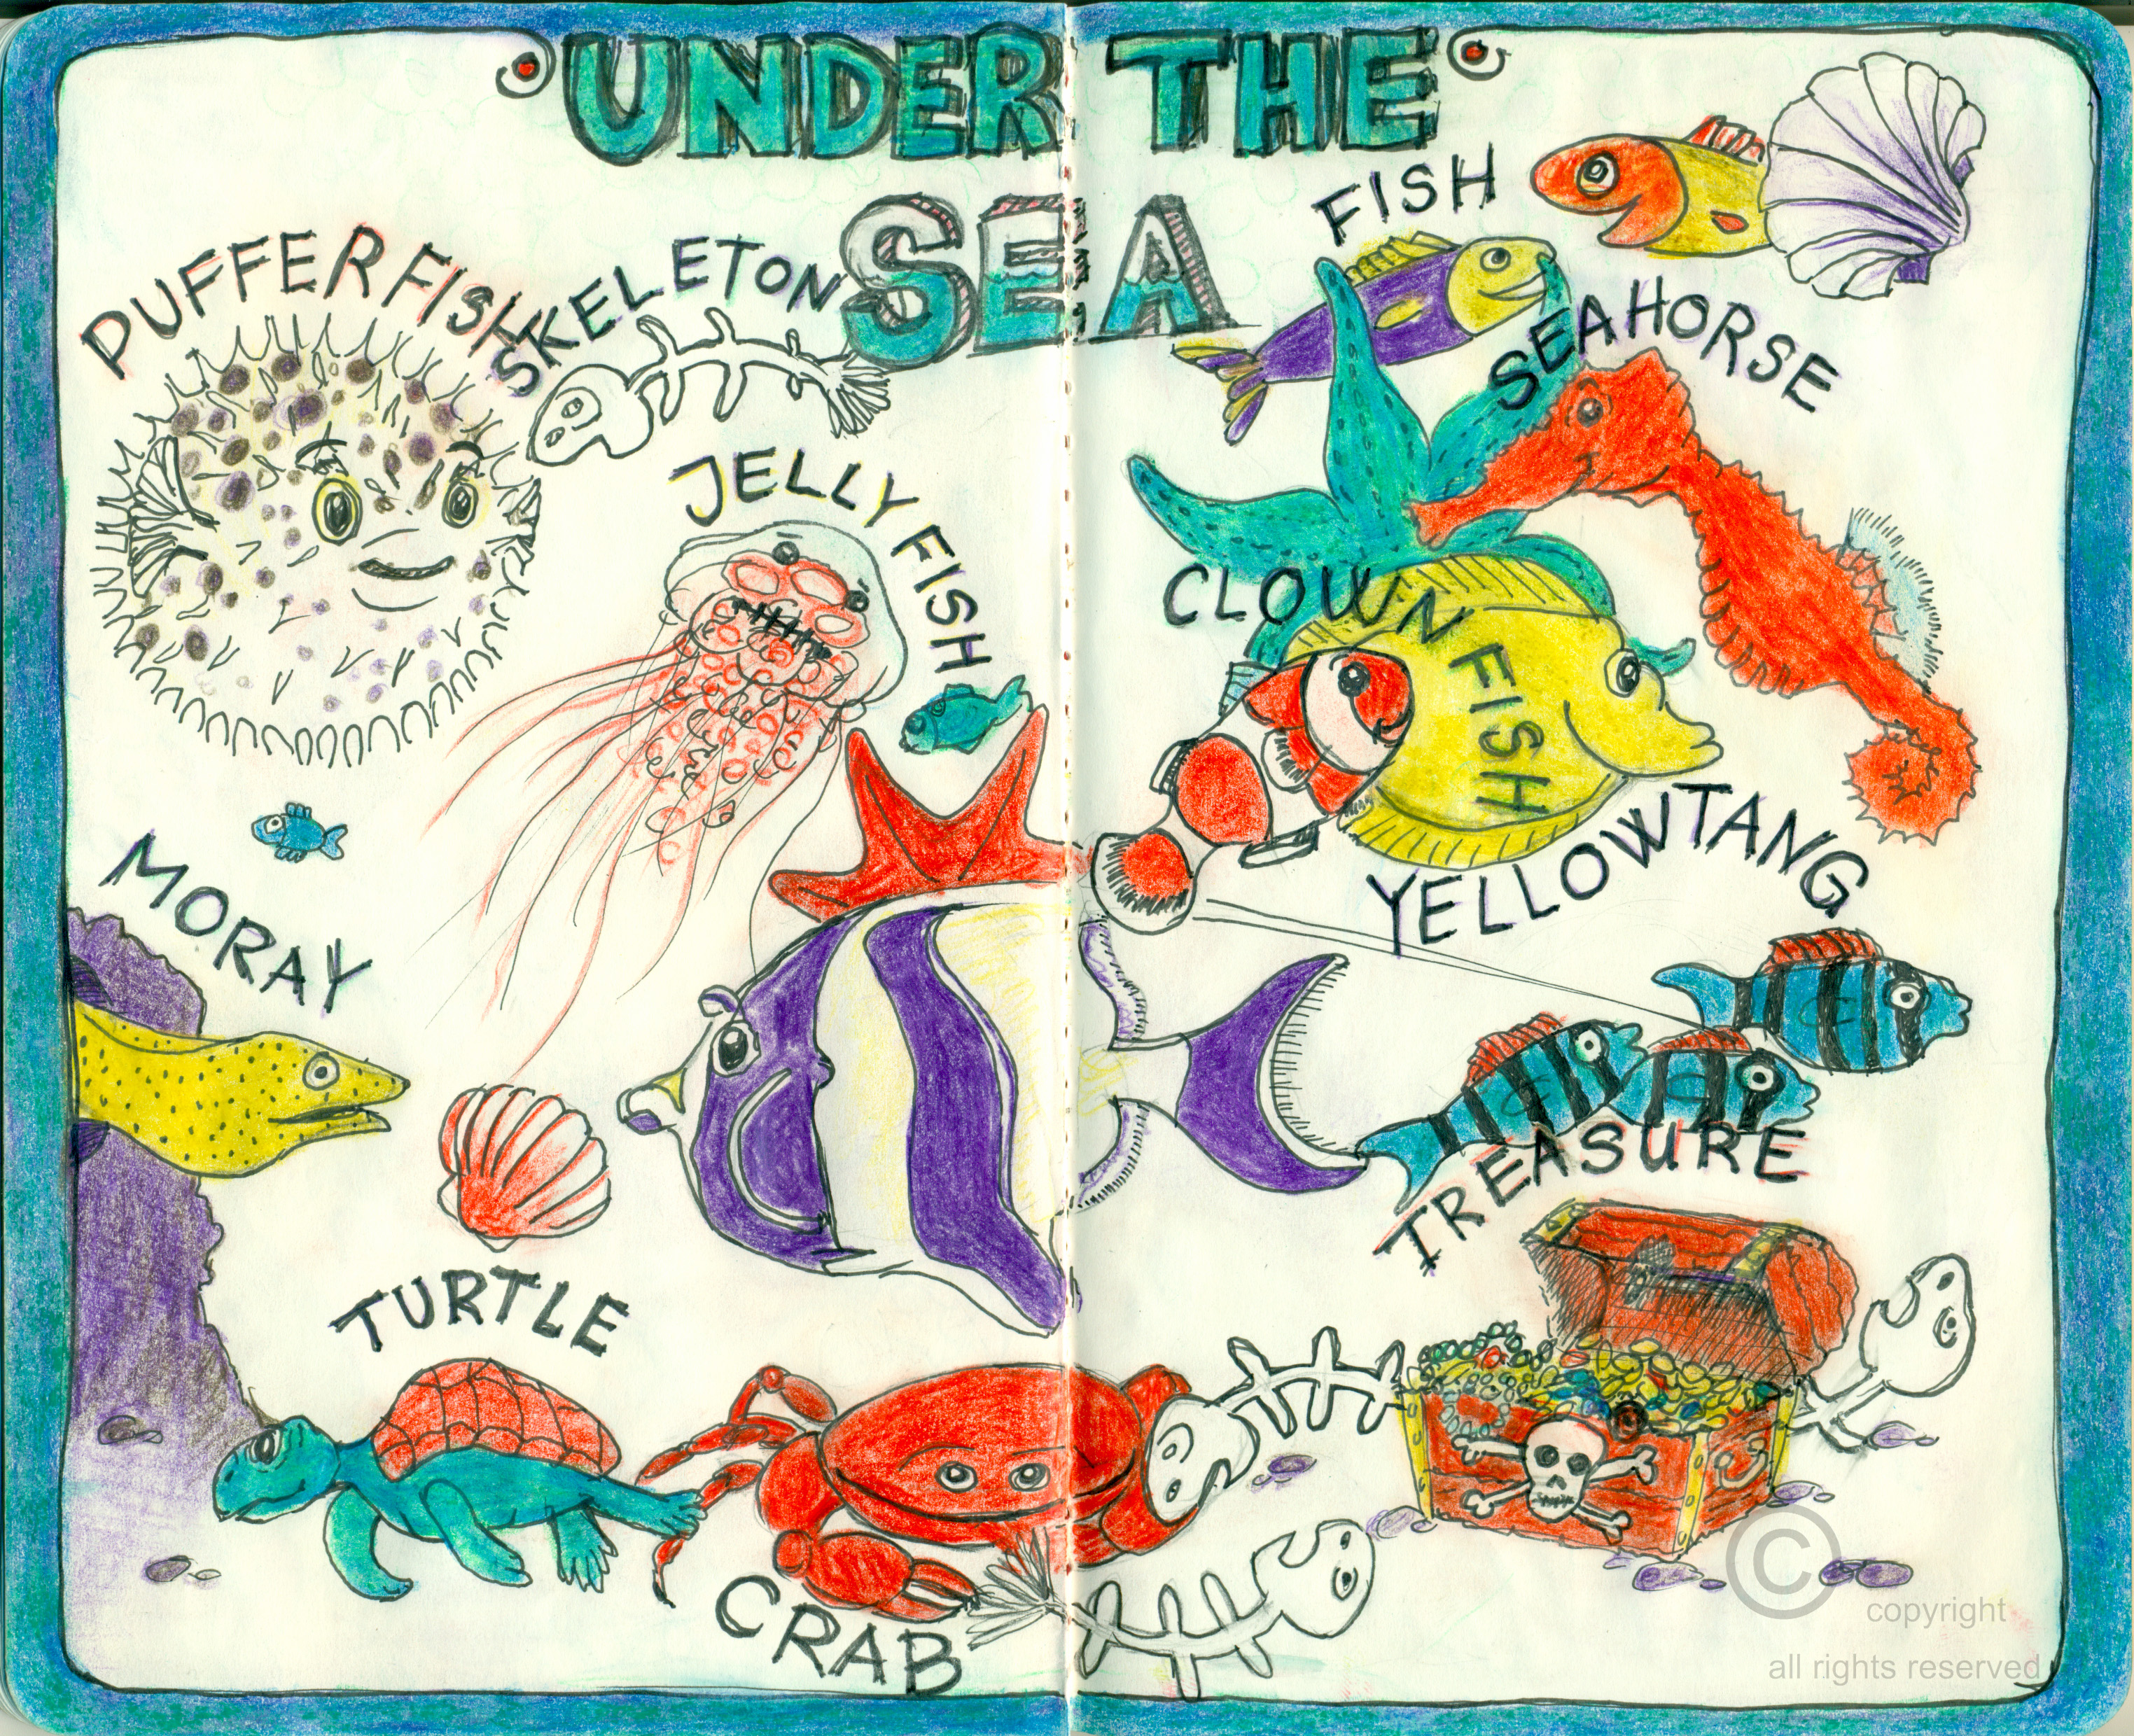 UNDER THE
SEA
FISH
PUFFERFISH
SKELETON
SEAHORSE
JELLY FISH
CLOWN FISH
YELLOWTANG
MORAY
TREASURE
TURTLE
CRAB
©
copyright
all rights reserved